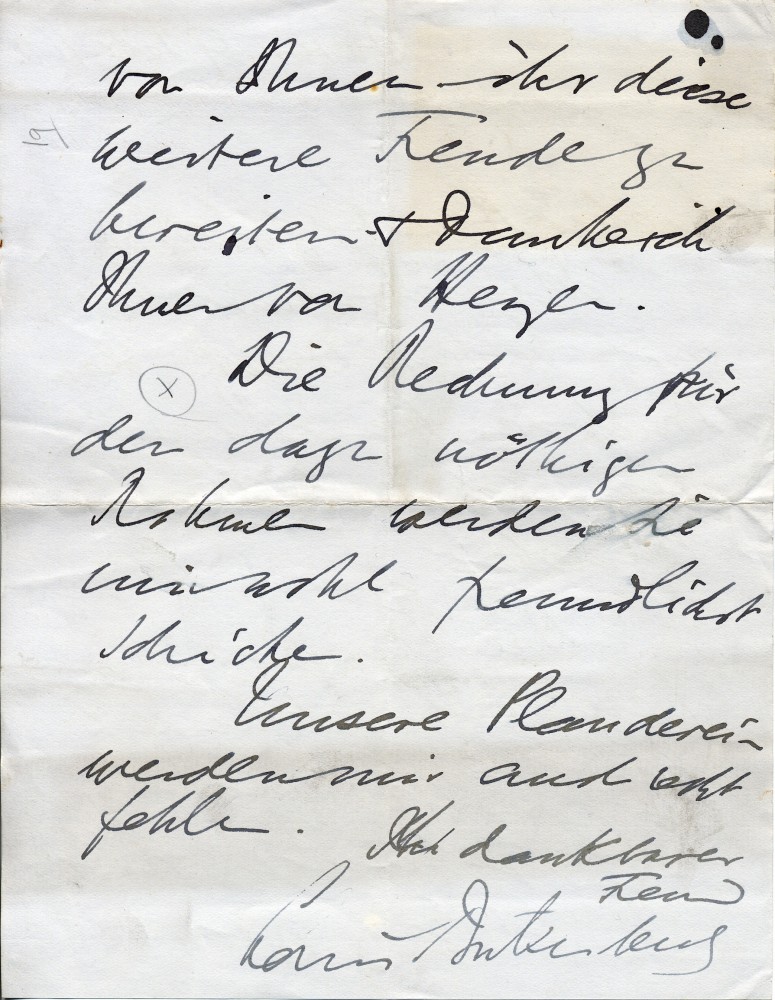 von Ihnen ihr diese
weitere Freude zu
bereiten + danke ich
Ihnen von Herzen.
Die Rechnung für
den dazu nöthigen
Rahmen werden Sie
mir wohl freundlichst
schicken.
Unsere Plaudereien
werden mir auch recht
fehlen.
Ihr dankbarer
Freund